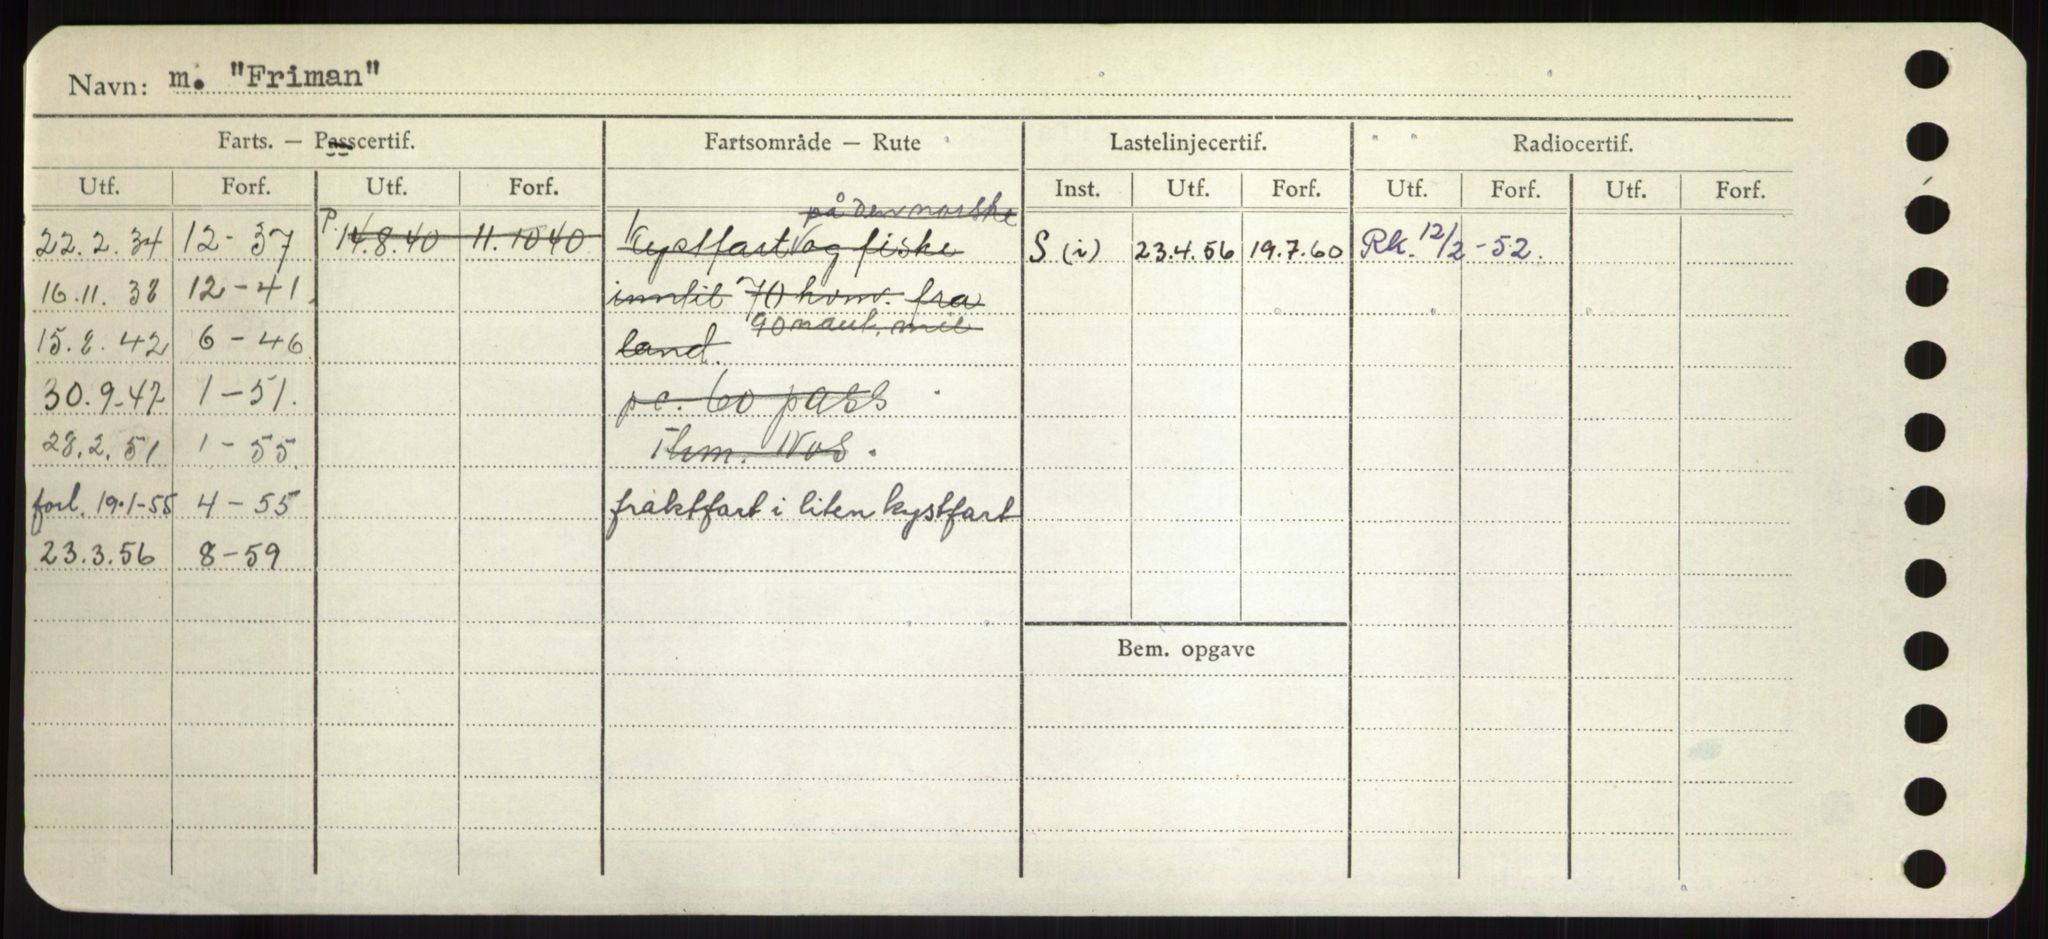 Navn: m. "Friman"
Farts. — Passcertif. Fartsområde — Rute Lastelinjecertif. Radiocertif.
Utf. Forf. Utf. Forf. Inst. Utf. Forf. Utf. Forf. Utf. Forf.
på den norske
22.2.34 12-37 P. 14.8.40 11.10 40 Kystfart og fiske S (i) 23.4.56 19.7.60 Rk. 12/2-52.
16.11.38 12-41 inntil 70 kvm. fra
90 naut. mil
15.8.42 6-46 land.
30.9.47 1-51. pc. 60 pass
28.2.51 1-55 Nos.
forl. 19.1-55 4-55 fraktfart i liten kystfart
23.3.56 8-59
Bem. opgave